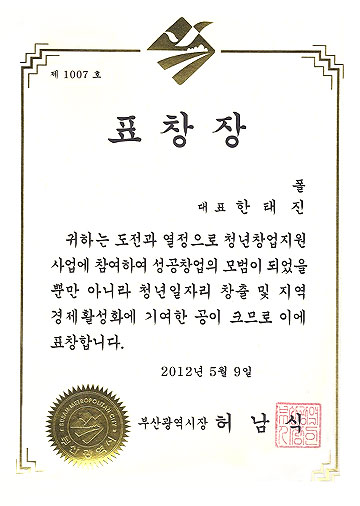 제 1007 호
표 창 장
풀
대표 한 태 진
귀하는 도전과 열정으로 청년창업지원
사업에 참여하여 성공창업의 모범이 되었을
뿐만 아니라 청년일자리 창출 및 지역
경제활성화에 기여한 공이 크므로 이에
표창합니다.
2012년 5월 9일
부산광역시장 허 남 식
BUSAN METROPOLITAN CITY
부산광역시